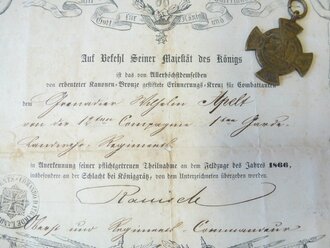 Gott für König und
Auf Befehl Seiner Majestät des Königs
ist das von Allerhöchstdemselben
von erbeuteter Kanonen-Bronze gestiftete Erinnerungs-Kreuz für Combattanten
dem Grenadier Wilhelm Apelt
von der 12ten Compagnie 1ten Garde-
Landwehr-Regiments
in Anerkennung seiner pflichtgetreuen Theilnahme an dem Feldzuge des Jahres 1866,
insbesondere an der Schlacht bei Königgrätz, von dem Unterzeichneten übergeben worden
Oberst und Regiments-Commandeur